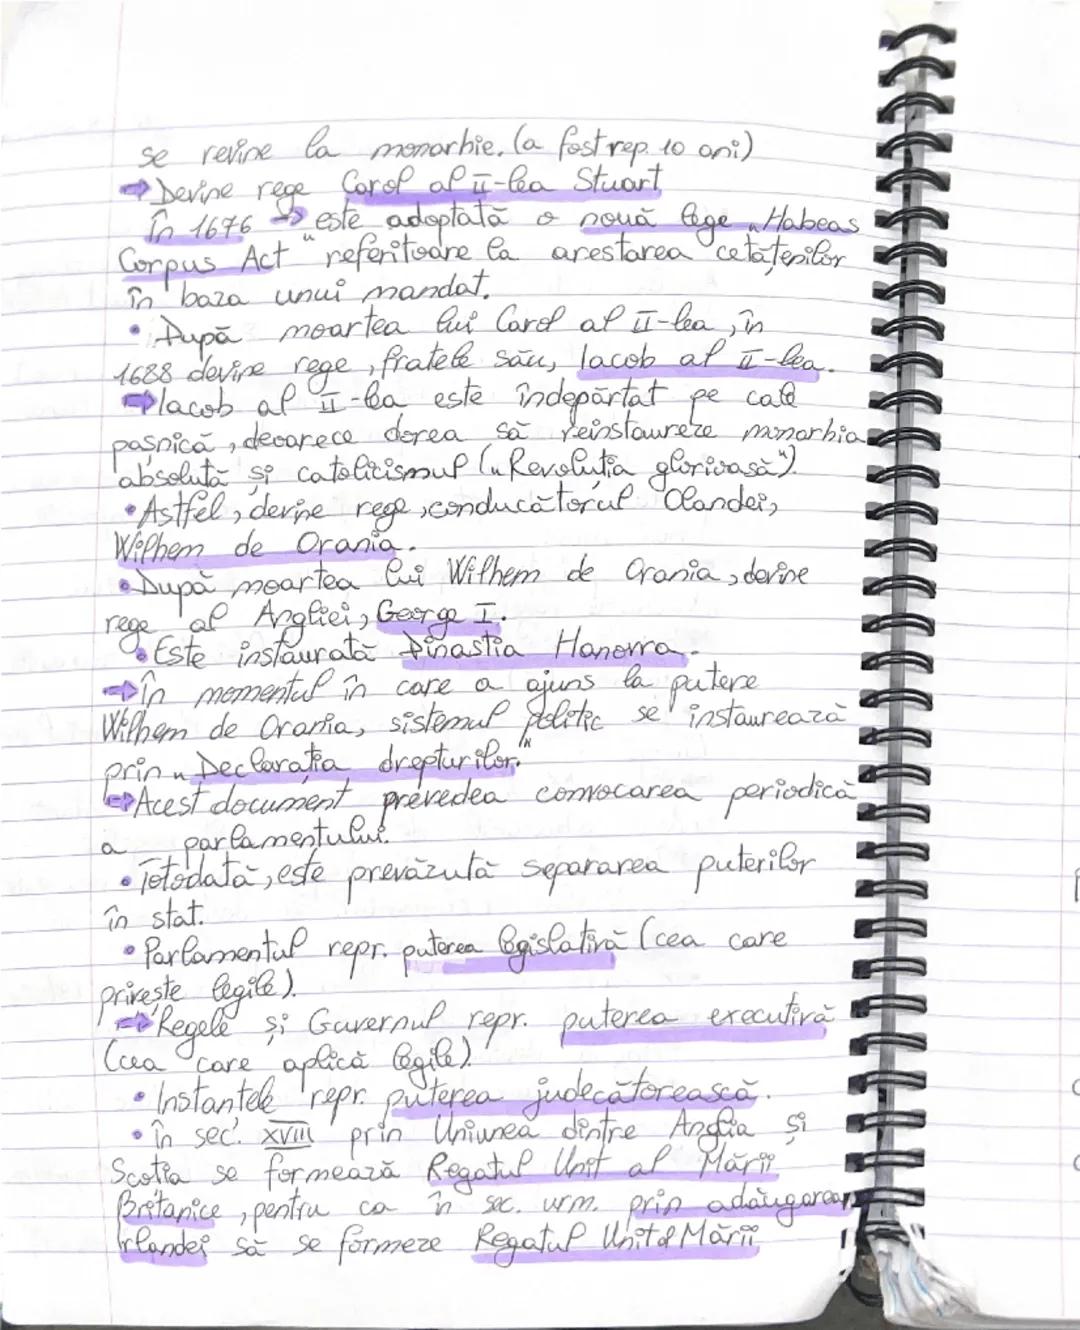 se revine la monarhie. (a fost rep. 10 ani)
→ Devine rege Carol al II-lea Stuart
În 1676 → este adoptată o nouă lege „Habeas
Corpus Act" referitoare la arestarea cetățenilor
în baza unui mandat.
• După moartea lui Carol al II-lea, în
1688 devine rege, fratele său, Iacob al II-lea.
→ Iacob al II-lea este îndepărtat pe cale
pașnică, deoarece dorea să reinstaureze monarhia
absolută și catolicismul („Revoluția glorioasă")
• Astfel, devine rege, conducătorul Olandei,
Wilhem de Orania.
• După moartea lui Wilhem de Orania, devine
rege al Angliei, George I.
• Este instaurată Dinastia Hanovra.
→ În momentul în care a ajuns la putere
Wilhem de Orania, sistemul politic se instaurează
prin „Declarația drepturilor."
→ Acest document prevedea convocarea periodică
a parlamentului.
• Totodată, este prevăzută separarea puterilor
în stat.
• Parlamentul repr. puterea legislativă (cea care
privește legile).
→ Regele și Guvernul repr. puterea executivă
(cea care aplică legile).
• Instantele repr. puterea judecătorească.
• în sec. XVIII prin Uniunea dintre Anglia și
Scoția se formează Regatul Unit al Mării
Britanice, pentru ca în sec. urm. prin adăugarea
Irlandei să se formeze Regatul Unit al Mării